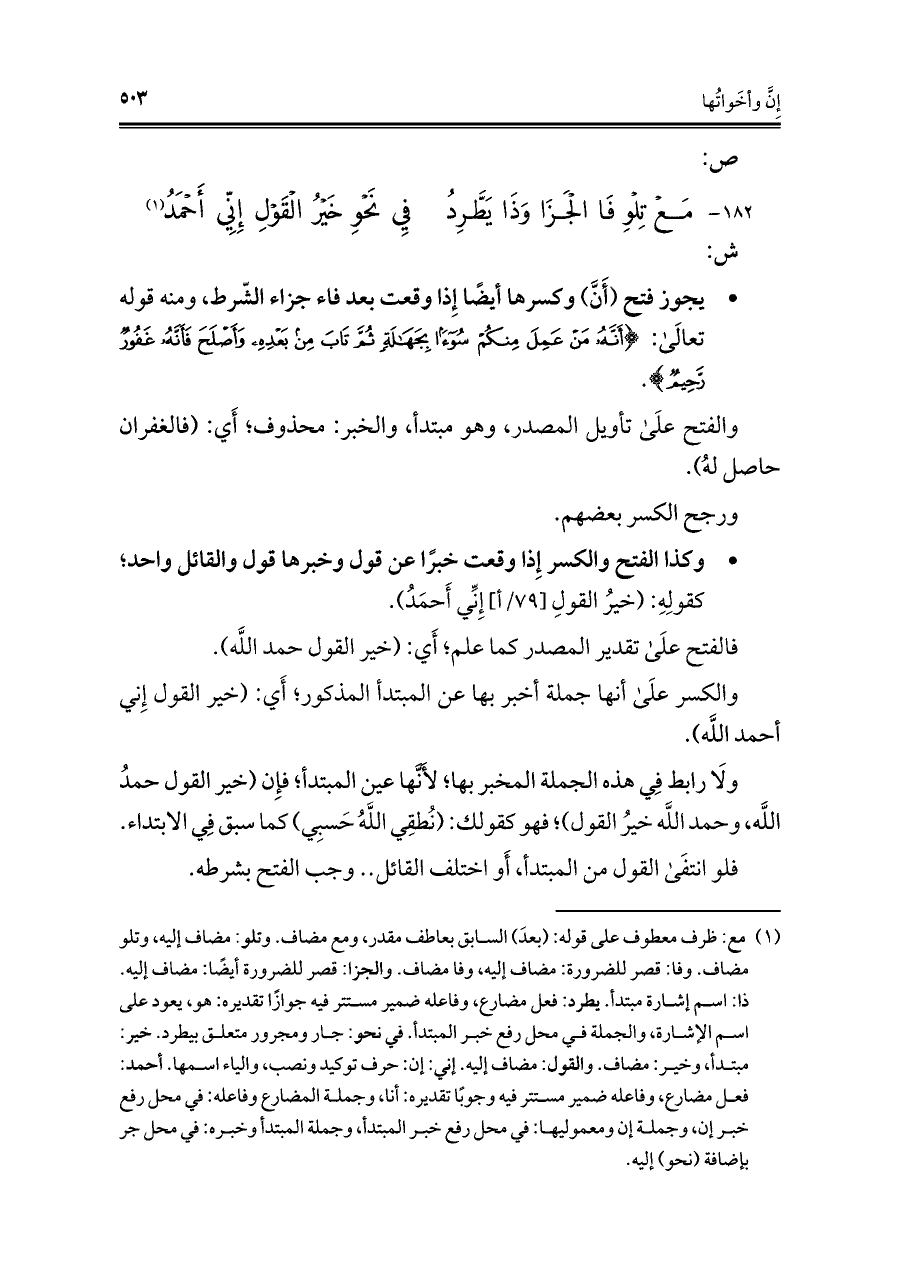 إِنَّ وأخَواتُها ٥٠٣
ص:
١٨٢- مَعْ تِلْوِ فَا الْجَزَا وَذَا يَطَّرِدُ فِي نَحْوِ خَيْرُ الْقَوْلِ إِنِّي أَحْمَدُ(١)
ش:
• يجوز فتح (أَنَّ) وكسرها أيضًا إِذا وقعت بعد فاء جزاء الشّرط، ومنه قوله
تعالَىٰ: ﴿أَنَّهُۥ مَنْ عَمِلَ مِنكُمْ سُوٓءًۢا بِجَهَٰلَةٍ ثُمَّ تَابَ مِنۢ بَعْدِهِۦ وَأَصْلَحَ فَأَنَّهُۥ غَفُورٌ
رَّحِيمٌ﴾.
والفتح علَىٰ تأويل المصدر، وهو مبتدأ، والخبر: محذوف؛ أَي: (فالغفران
حاصل لهُ).
ورجح الكسر بعضهم.
• وكذا الفتح والكسر إِذا وقعت خبرًا عن قول وخبرها قول والقائل واحد؛
كقولِهِ: (خيرُ القولِ [٧٩/ أ] إِنِّي أَحمَدُ).
فالفتح علَىٰ تقدير المصدر كما علم؛ أَي: (خير القول حمد اللَّه).
والكسر علَىٰ أنها جملة أخبر بها عن المبتدأ المذكور؛ أَي: (خير القول إِني
أحمد اللَّه).
ولَا رابط فِي هذه الجملة المخبر بها؛ لأَنَّها عين المبتدأ؛ فإِن (خير القول حمدُ
اللَّه، وحمد اللَّه خيرُ القول)؛ فهو كقولك: (نُطقِي اللَّهُ حَسبِي) كما سبق فِي الابتداء.
فلو انتفَىٰ القول من المبتدأ، أَو اختلف القائل.. وجب الفتح بشرطه.
(١) مع: ظرف معطوف على قوله: (بعدَ) السابق بعاطف مقدر، ومع مضاف. وتلو: مضاف إليه، وتلو
مضاف. وفا: قصر للضرورة: مضاف إليه، وفا مضاف. والجزا: قصر للضرورة أيضًا: مضاف إليه.
ذا: اسم إشارة مبتدأ. يطرد: فعل مضارع، وفاعله ضمير مستتر فيه جوازًا تقديره: هو، يعود على
اسم الإشارة، والجملة في محل رفع خبر المبتدأ. في نحو: جار ومجرور متعلق بيطرد. خير:
مبتدأ، وخير: مضاف. والقول: مضاف إليه. إني: إن: حرف توكيد ونصب، والياء اسمها. أحمد:
فعل مضارع، وفاعله ضمير مستتر فيه وجوبًا تقديره: أنا، وجملة المضارع وفاعله: في محل رفع
خبر إن، وجملة إن ومعموليها: في محل رفع خبر المبتدأ، وجملة المبتدأ وخبره: في محل جر
بإضافة (نحو) إليه.